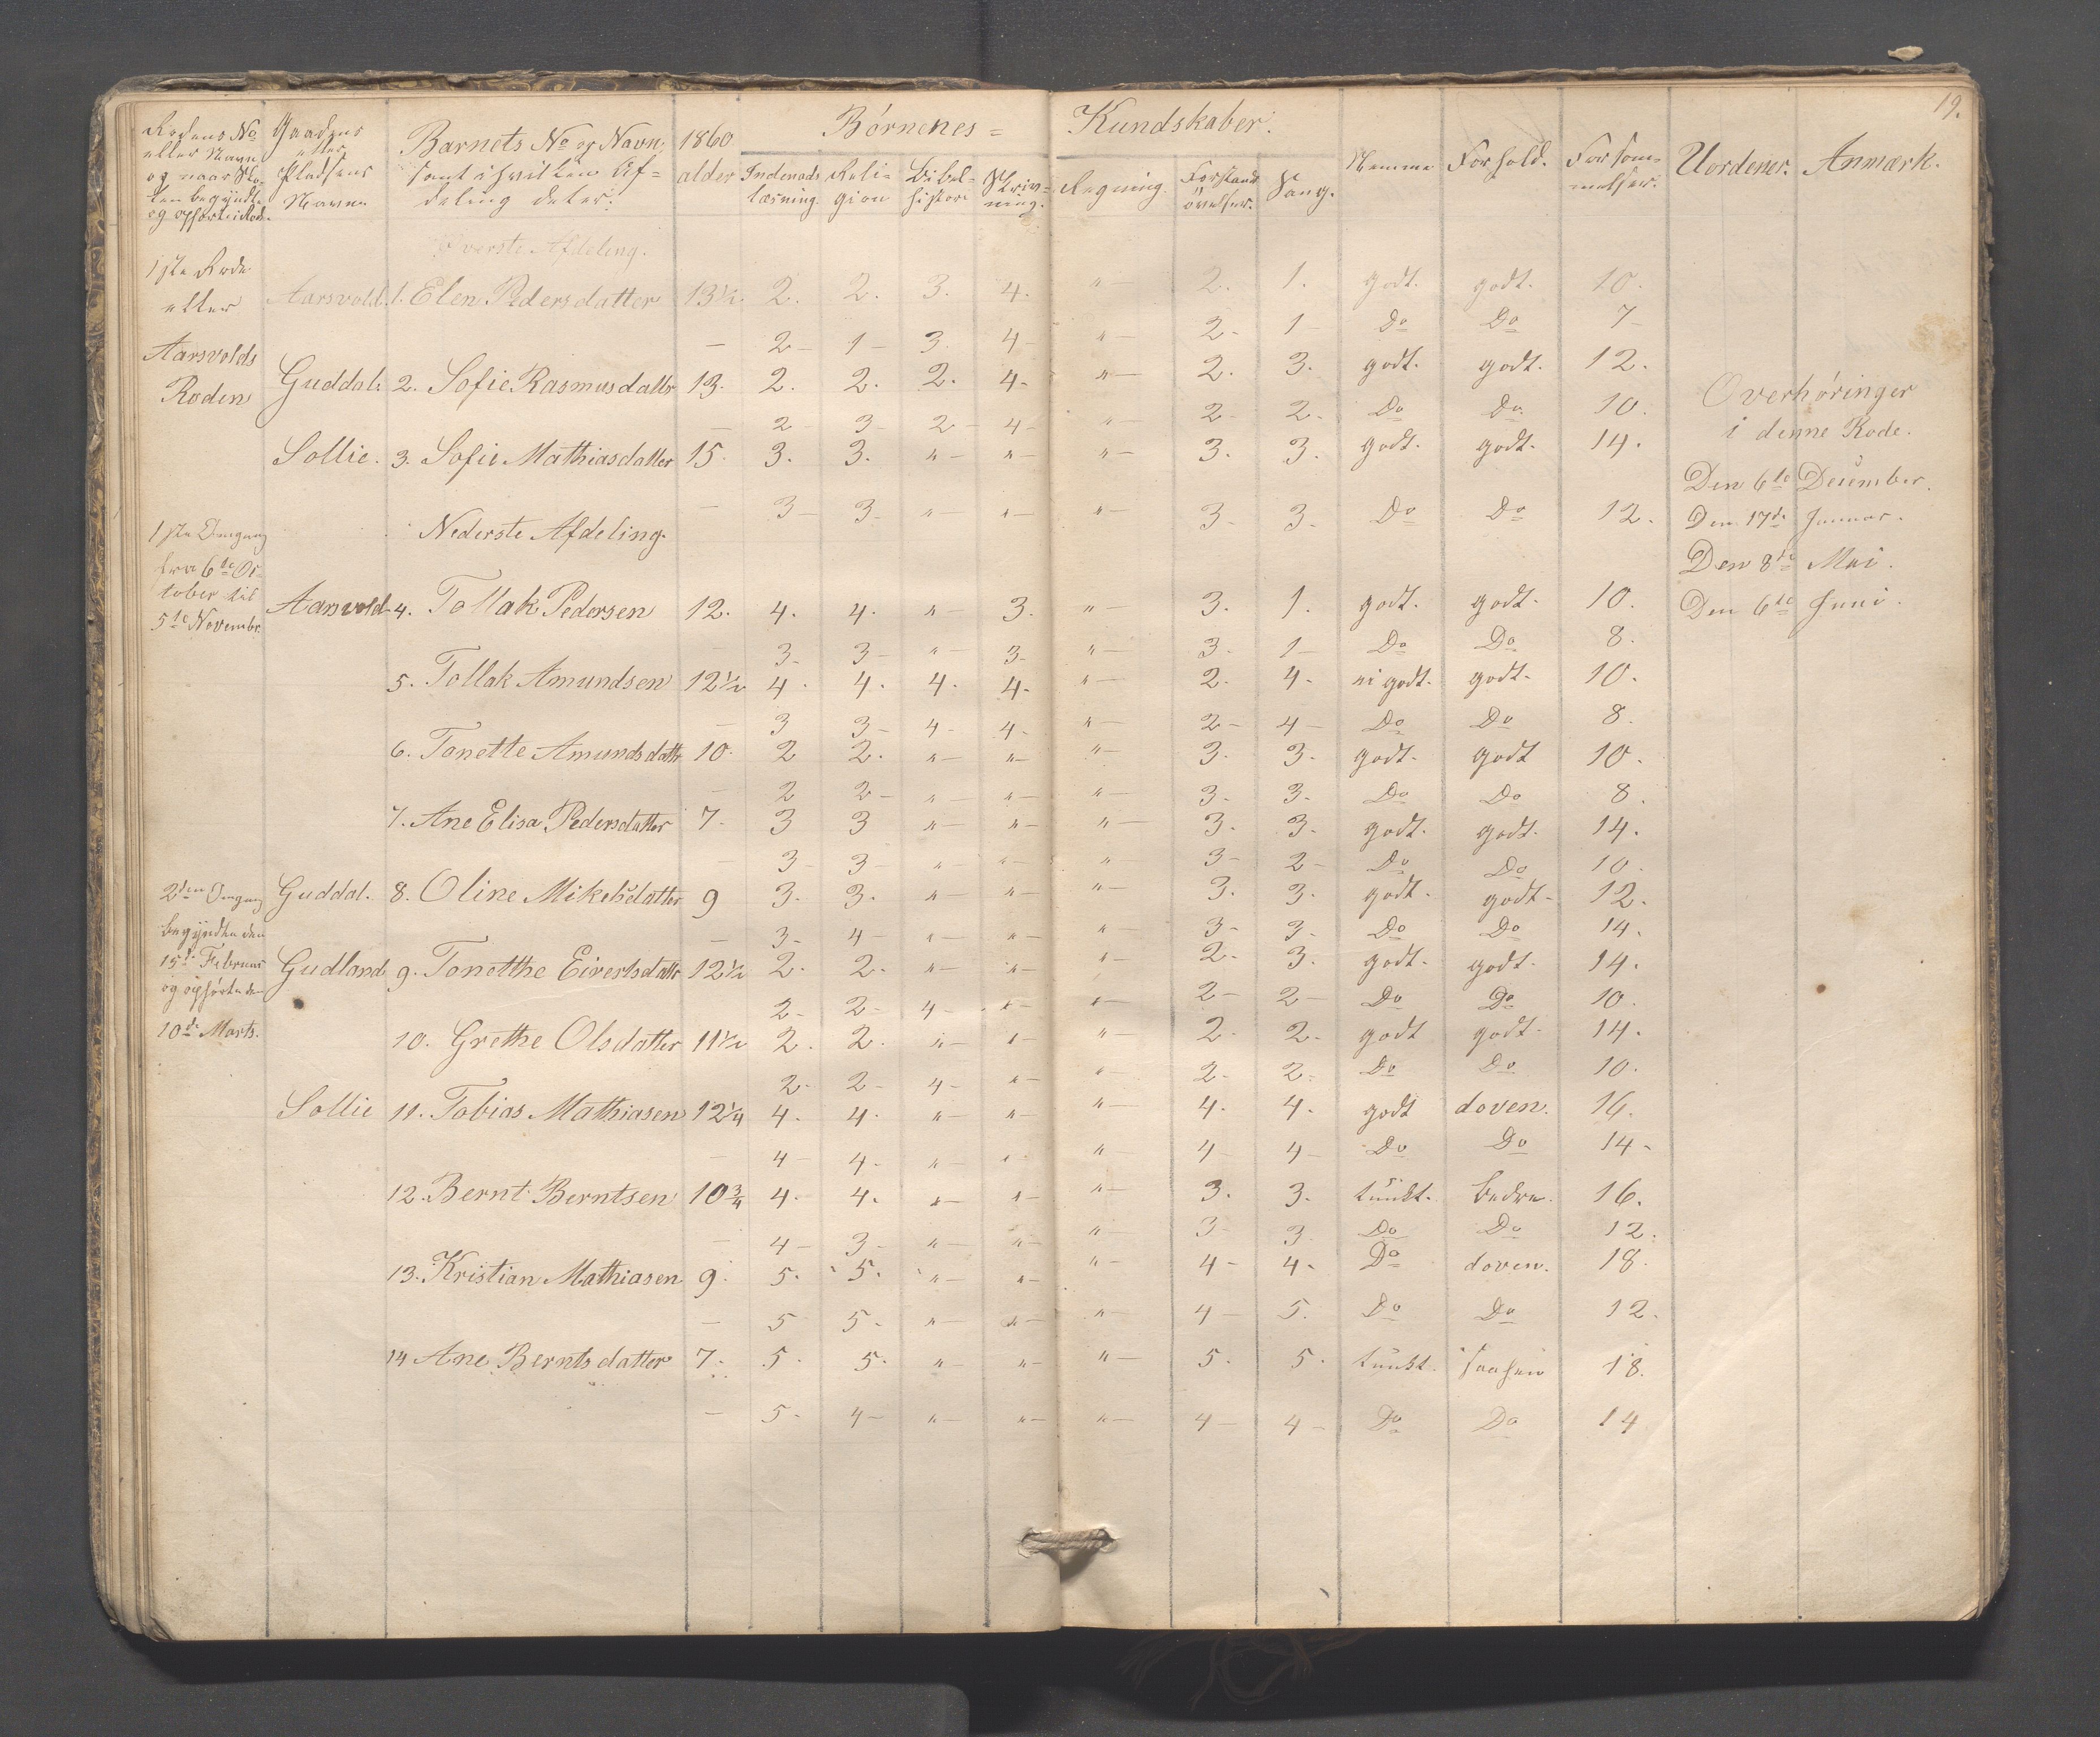 19.
Rodens No eller Navn og naar Skolen begyndte og opførte i Rode.
Gaardens eller Pladsens Navn
Barnets No og Navn, samt i hvilken Afdeling det er.
1860 alder
Børnenes = Kundskaber.
Indenads læsning. Religion Bibelhistorie Skrivning. Regning. Forstands øvelser. Sang.
Nemme Forhold. Forsømmelser. Uordener. Anmærk.
Øverste Afdeling.
1ste Rode eller Aarsvolds Roden
Aarsvold. 1. Elen Pedersdatter 13½. 2. 2. 3. 4. " — 2. 1. godt. godt. 10.
— 2 — 1 — 3. 4 — " — 2 - 1 — Do Do 7 —
Guddal. 2. Sofie Rasmusdatter 13. 2. 2. 2. 4. " — 2. 3. godt. godt. 12.
— 2 — 3 — 2 — 4 — " — 2 - 2 - Do Do 10.
Sollie. 3. Sofie Mathiasdatter 15. 3. 3. " — " — " — 3. 3. godt. godt. 14.
— 3 — 3 — " — " — " — 3 - 3. Do Do 12.
Nederste Afdeling.
1ste Omgang fra 6te October til 5te Novembr.
Aarsvold. 4. Tollak Pedersen 12. 4. 4. " — 3. " — 3. 1. godt. godt. 10.
— 3 - 3 — " — 3 - " — 3 - 1 — Do Do 8.
5. Tollak Amundsen 12½ 4. 4. 4. 4. " — 2. 4. ei godt. godt. 10.
— 3 3 — 4 - 4 - " — 2 — 4 — Do Do 8.
6. Tonette Amundsdattr 10. 2 2. " — " — " — 3. 3. godt. godt 10.
— 2 2 — " — " — " — 3 - 3. Do Do 8.
7. Ane Elisa Pedersdatter 7. 3 3 " — " — " — 3. 3. godt. godt. 14.
— 3 — 3 — " — " — " — 3 - 2 - Do Do 10.
2den Omgang begyndte den 15de Februar og opførte den 10de Marts.
Guddal. 8. Oline Mikelsdatter 9 3. 3. " — " — " — 3. 3. godt. godt. 12.
— 3 - 4 — " — " — " — 3 - 3. Do Do 14.
Gudland 9. Tonetthe Eivertsdattr 12½ 2. 2. " — " — " — 2. 3. godt. godt. 14.
2 - 2 — 4 — " — " — 2 — 2 — Do Do 10.
10. Grethe Olsdatter 11½ 2. 2. " — " — " — 2. 2. godt godt. 14.
2 - 2 — 4 - " — " — 2 - 2. Do Do 10.
Sollie 11. Tobias Mathiasen 12¼ 4. 4. " — " — " — 4. 4. godt doven. 16.
— 4 — 4 - " — " — " — 4 - 4 — Do Do 14 -
12. Bernt Berntsen 10¾ 4. 4. " — " — " — 3. 3. tungt. bedre. 16.
— 4 — 3 - " — " — " — 3 - 3 Do Do 12.
13. Kristian Mathiasen 9. 5. 5. " — " — " — 4 - 4. Do doven. 18.
— 5 5 - " — " — " — 4 — 5. Do Do 12.
14 Ane Berntsdatter 7. 5. 5. " — " — " — 5. 5. tungt. 18.
— 5 - 4 — " — " — " — 4 — 4 — Do Do 14
Overhøringer
i denne Rode.
Den 6te December.
Den 17de Januar.
Den 8de Mai.
Den 6te Juni.